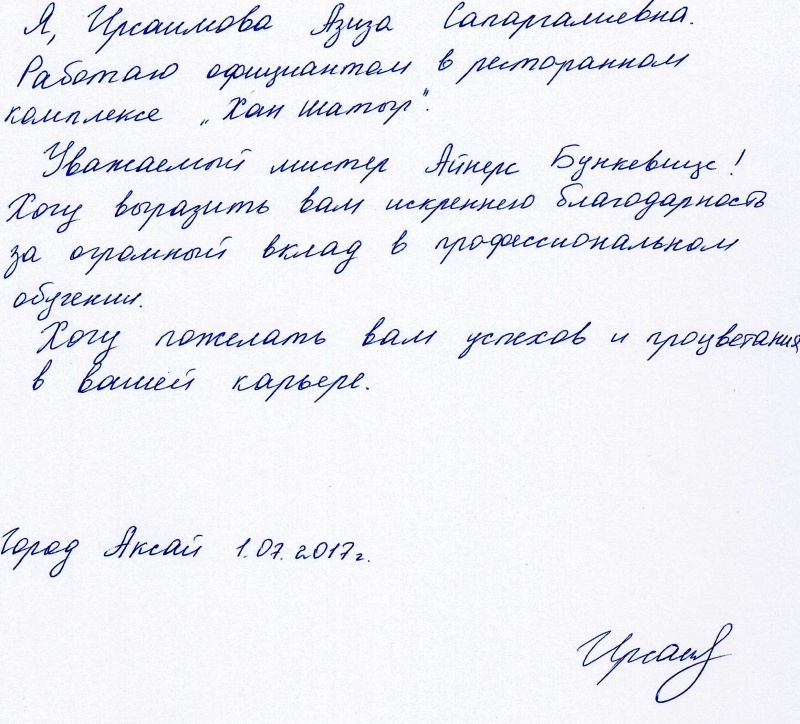 Я, Ирсаимова Азиза Сапаргалиевна.
Работаю официантом в ресторанном
комплексе „Хан шатыр".
Уважаемый мистер Айнерс Бункевицс!
Хочу выразить вам искреннего благодарность
за огромный вклад в профессиональном
обучении.
Хочу пожелать вам успехов и процветания
в вашей карьере.
Город Аксай 1.07.2017г.